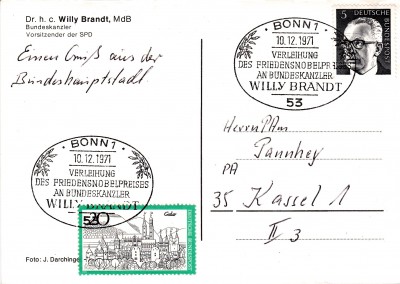 Dr. h. c. Willy Brandt, MdB
Bundeskanzler
Vorsitzender der SPD
Einen Gruß aus der
Bundeshauptstadt
BONN 1
10.12.1971
VERLEIHUNG
DES FRIEDENSNOBELPREISES
AN BUNDESKANZLER
WILLY BRANDT
53
20
Goslar
DEUTSCHE BUNDESPOST
Foto: J. Darchinger
BONN 1
10.12.1971
VERLEIHUNG
DES FRIEDENSNOBELPREI
AN BUNDESKANZLER
WILLY BRANDT
53
5
DEUTSCHE BUNDESPOST
Herrn
PA
35 Kassel 1
II 3